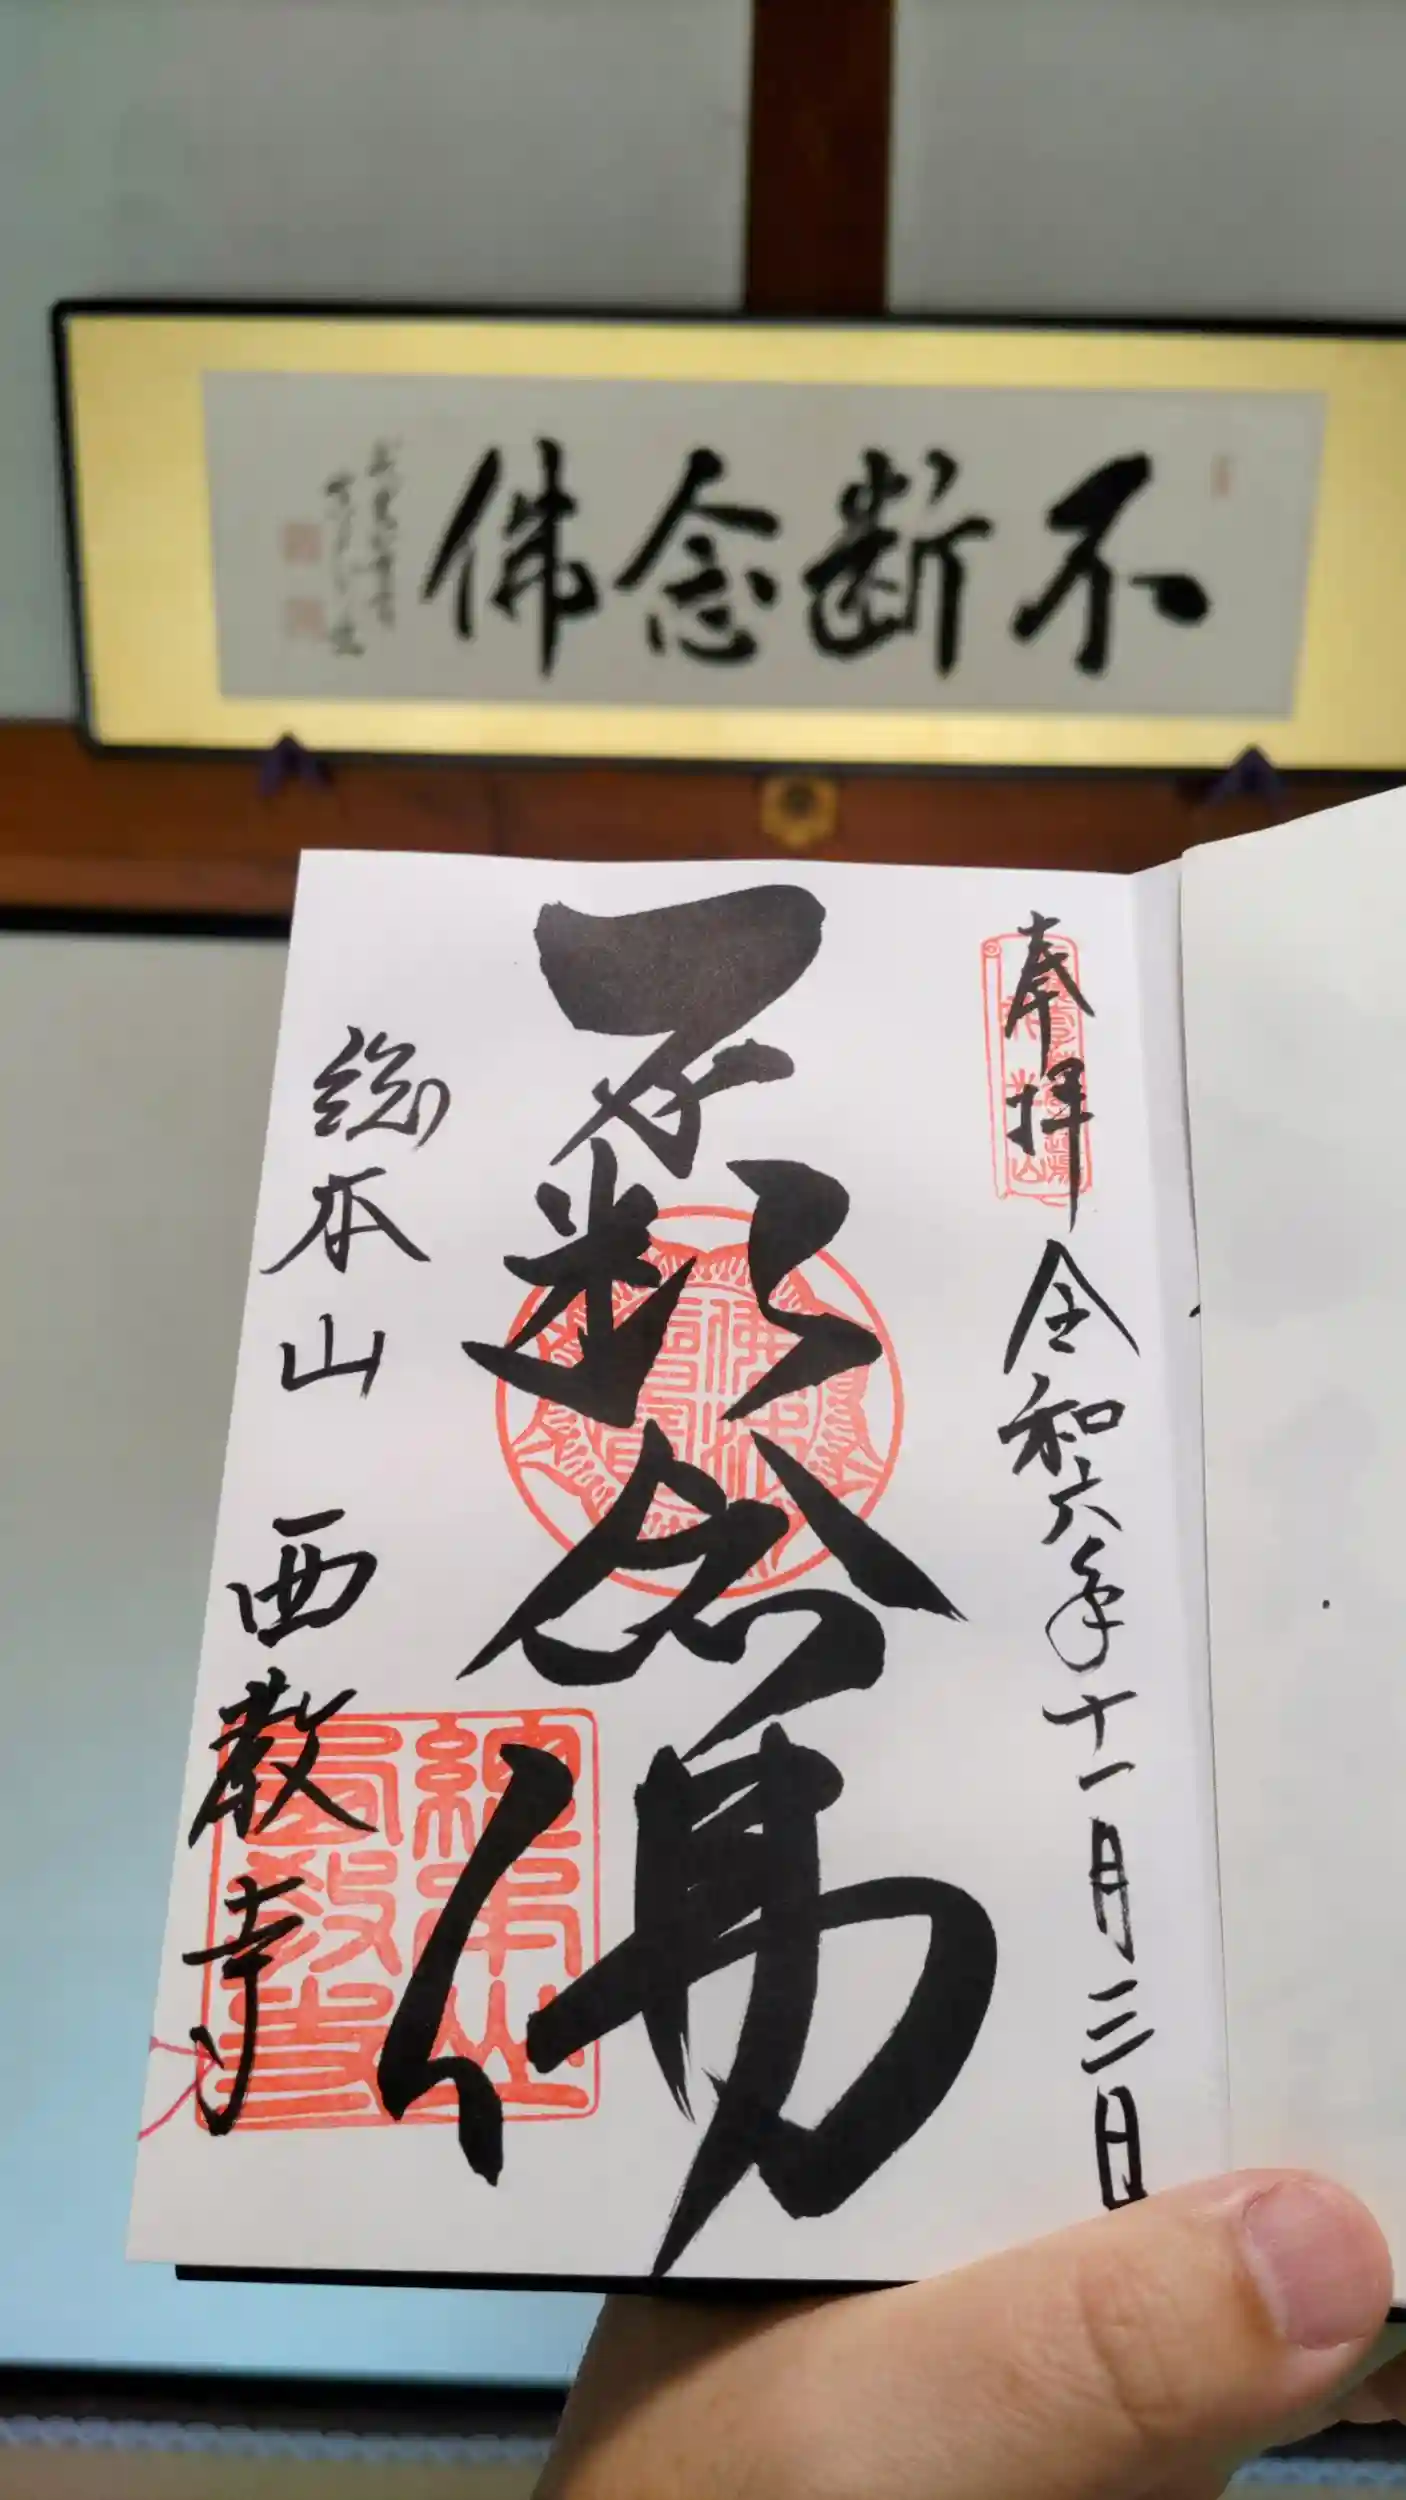 不断念佛
奉拝 令和六年十一月三日
不断念佛
総本山 西教寺
佛法僧寶
總本山西教寺